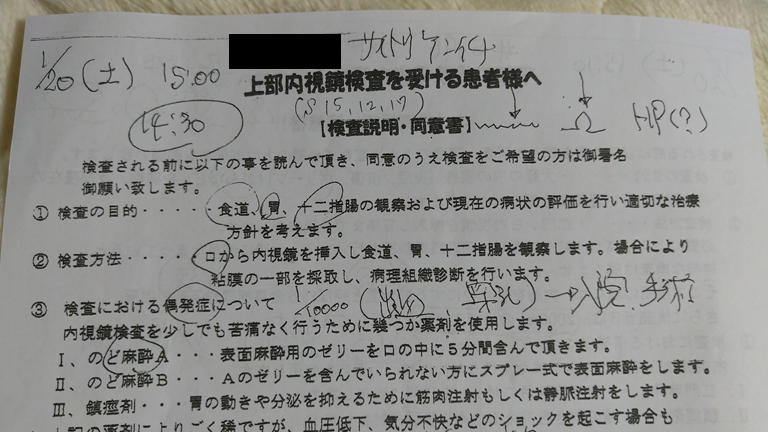 1/20(土) 15:00 サイトリ ケンイチ
上部内視鏡検査を受ける患者様へ
14:30 (S15,12,17)
【検査説明・同意書】 HP(?)
検査される前に以下の事を読んで頂き、同意のうえ検査をご希望の方は御署名
御願い致します。
① 検査の目的・・・・・食道、胃、十二指腸の観察および現在の病状の評価を行い適切な治療
方針を考えます。
② 検査方法・・・・・・口から内視鏡を挿入し食道、胃、十二指腸を観察します。場合により
粘膜の一部を採取し、病理組織診断を行います。
③ 検査における偶発症について 1/10000 (出血、穿孔)→入院 手術
内視鏡検査を少しでも苦痛なく行うために幾つか薬剤を使用します。
Ⅰ、のど麻酔A・・・表面麻酔用のゼリーを口の中に5分間含んで頂きます。
Ⅱ、のど麻酔B・・・Aのゼリーを含んでいられない方にスプレー式で表面麻酔をします。
Ⅲ、鎮痙剤・・・胃の動きや分泌を抑えるために筋肉注射もしくは静脈注射をします。
上記の薬剤によりごく稀ですが、血圧低下、気分不快などのショックを起こす場合も